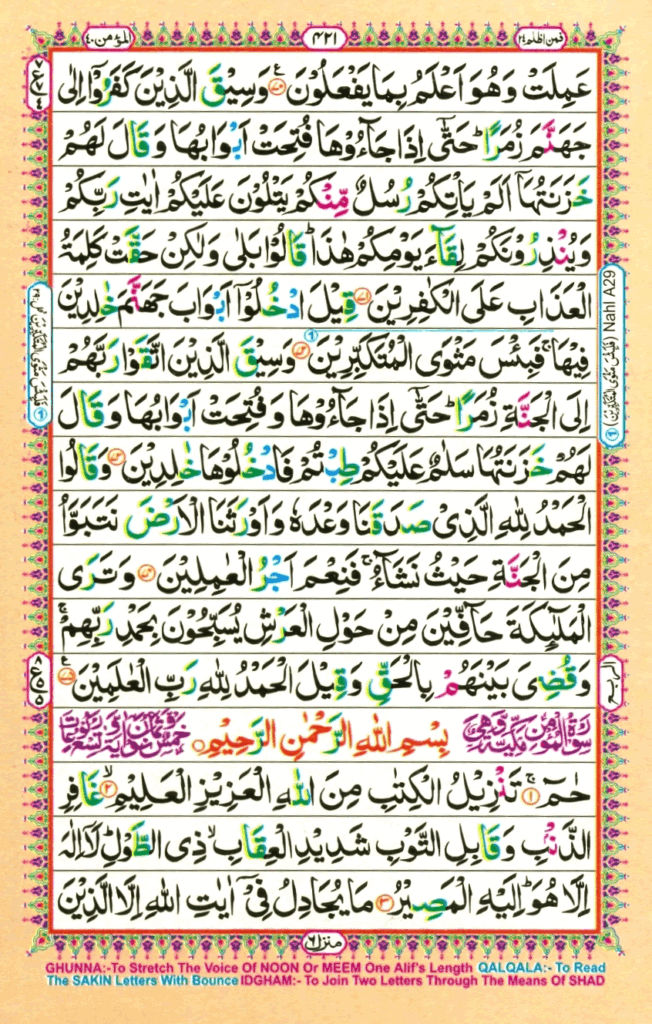 فمن اظلم ٢٤
٤٢١
المؤمن ٤٠
عَمِلَتْ وَهُوَ اَعْلَمُ بِمَا يَفْعَلُوْنَ ﴿٧٠﴾ وَسِيْقَ الَّذِيْنَ كَفَرُوْۤا اِلٰى
جَهَنَّمَ زُمَرًا ؕ حَتّٰۤى اِذَا جَآءُوْهَا فُتِحَتْ اَبْوَابُهَا وَقَالَ لَهُمْ
خَزَنَتُهَاۤ اَلَمْ يَاْتِكُمْ رُسُلٌ مِّنْكُمْ يَتْلُوْنَ عَلَيْكُمْ اٰيٰتِ رَبِّكُمْ
وَيُنْذِرُوْنَكُمْ لِقَآءَ يَوْمِكُمْ هٰذَا ؕ قَالُوْا بَلٰى وَلٰكِنْ حَقَّتْ كَلِمَةُ
الْعَذَابِ عَلَى الْكٰفِرِيْنَ ﴿٧١﴾ قِيْلَ ادْخُلُوْۤا اَبْوَابَ جَهَنَّمَ خٰلِدِيْنَ
فِيْهَا ۚ فَبِئْسَ مَثْوَى الْمُتَكَبِّرِيْنَ ﴿٧٢﴾ وَسِيْقَ الَّذِيْنَ اتَّقَوْا رَبَّهُمْ
اِلَى الْجَنَّةِ زُمَرًا ؕ حَتّٰۤى اِذَا جَآءُوْهَا وَفُتِحَتْ اَبْوَابُهَا وَقَالَ
لَهُمْ خَزَنَتُهَا سَلٰمٌ عَلَيْكُمْ طِبْتُمْ فَادْخُلُوْهَا خٰلِدِيْنَ ﴿٧٣﴾ وَقَالُوا
الْحَمْدُ لِلّٰهِ الَّذِيْ صَدَقَنَا وَعْدَهٗ وَاَوْرَثَنَا الْاَرْضَ نَتَبَوَّاُ
مِنَ الْجَنَّةِ حَيْثُ نَشَآءُ ۚ فَنِعْمَ اَجْرُ الْعٰمِلِيْنَ ﴿٧٤﴾ وَتَرَى
الْمَلٰٓئِكَةَ حَآفِّيْنَ مِنْ حَوْلِ الْعَرْشِ يُسَبِّحُوْنَ بِحَمْدِ رَبِّهِمْ ۚ
وَقُضِيَ بَيْنَهُمْ بِالْحَقِّ وَقِيْلَ الْحَمْدُ لِلّٰهِ رَبِّ الْعٰلَمِيْنَ ﴿٧٥﴾
سورة المؤمن مكية وهي
بِسْمِ اللّٰهِ الرَّحْمٰنِ الرَّحِيْمِ
خمس وثمانون اية وتسع ركوعات
حٰمٓ ۚ ﴿١﴾ تَنْزِيْلُ الْكِتٰبِ مِنَ اللّٰهِ الْعَزِيْزِ الْعَلِيْمِ ۙ ﴿٢﴾ غَافِرِ
الذَّنْۢبِ وَقَابِلِ التَّوْبِ شَدِيْدِ الْعِقَابِ ۙ ذِي الطَّوْلِ ؕ لَاۤ اِلٰهَ
اِلَّا هُوَ ؕ اِلَيْهِ الْمَصِيْرُ ﴿٣﴾ مَا يُجَادِلُ فِيْۤ اٰيٰتِ اللّٰهِ اِلَّا الَّذِيْنَ
Nahl A29
الربع
منزل ٦
GHUNNA:-To Stretch The Voice Of NOON Or MEEM One Alif's Length QALQALA:- To Read
The SAKIN Letters With Bounce IDGHAM:- To Join Two Letters Through The Means Of SHAD